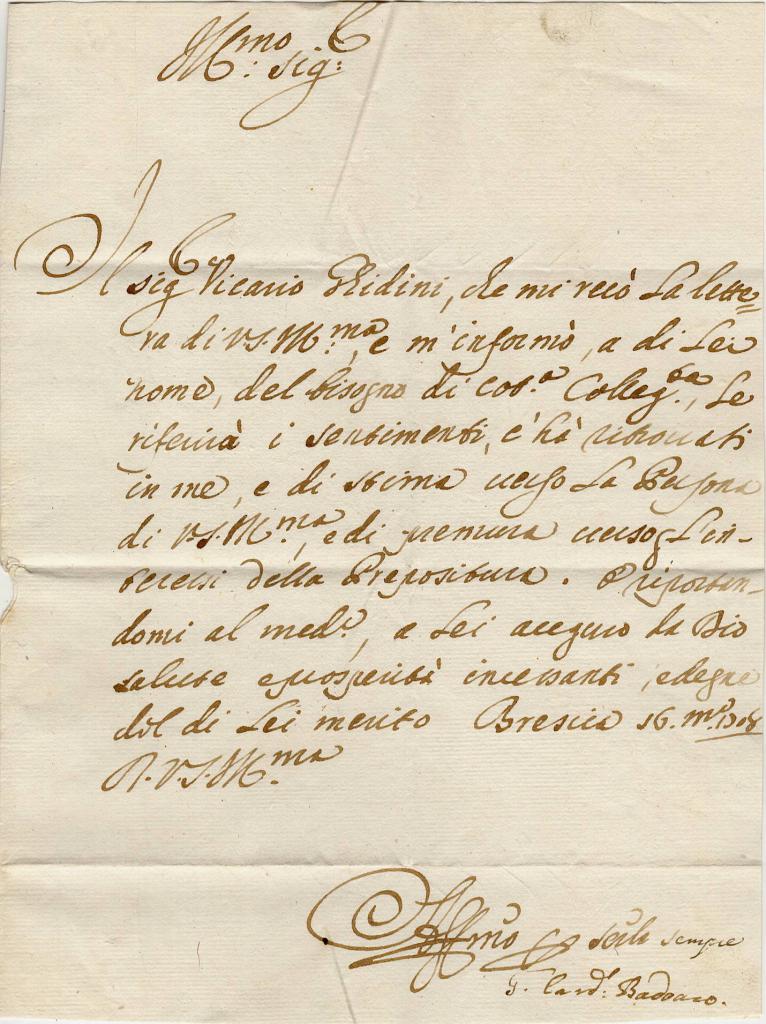 Ill.mo Sig.
Il sig. Vicario Ghidini, che mi recò la lette=
ra di V.S. Ill.ma, e m'informò, a di Lei
nome, del bisogno di cot.a Colleg.ta, Le
riferirà i sentimenti, c'hà ritrovati
in me, e di stima verso la Persona
di V.S. Ill.ma, e di premura verso gl'in-
teressi della Prepositura. E riportan-
domi al med.o, a Lei auguro da Dio
salute e prosperità incessanti, e degne
del di Lei merito Brescia 16. 1708
D. V.S. Ill.ma
Aff.mo sempre
G. Card.l Badoaro.